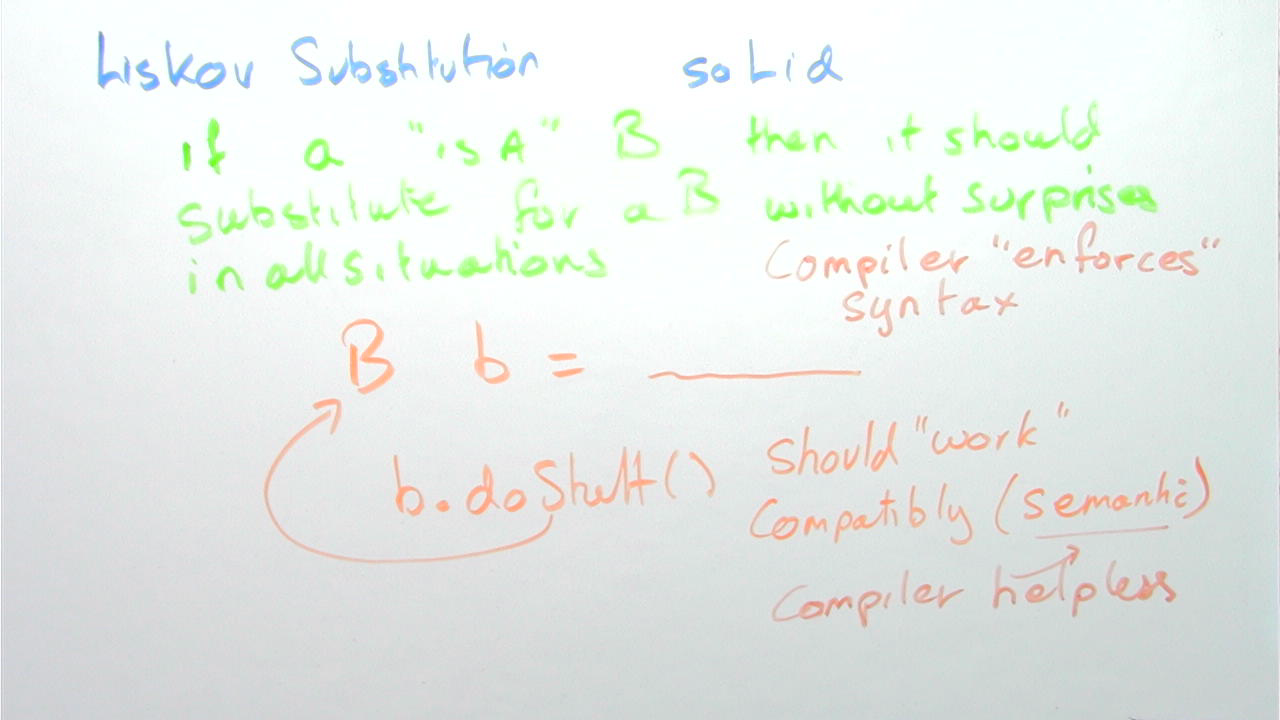 Liskov Substitution soLid
if a "is A" B then it should
substitute for a B without surprises
in all situations
Compiler "enforces"
syntax
B b = ________
b.doStuff()
Should "work"
Compatibly (semantic)
Compiler helpless